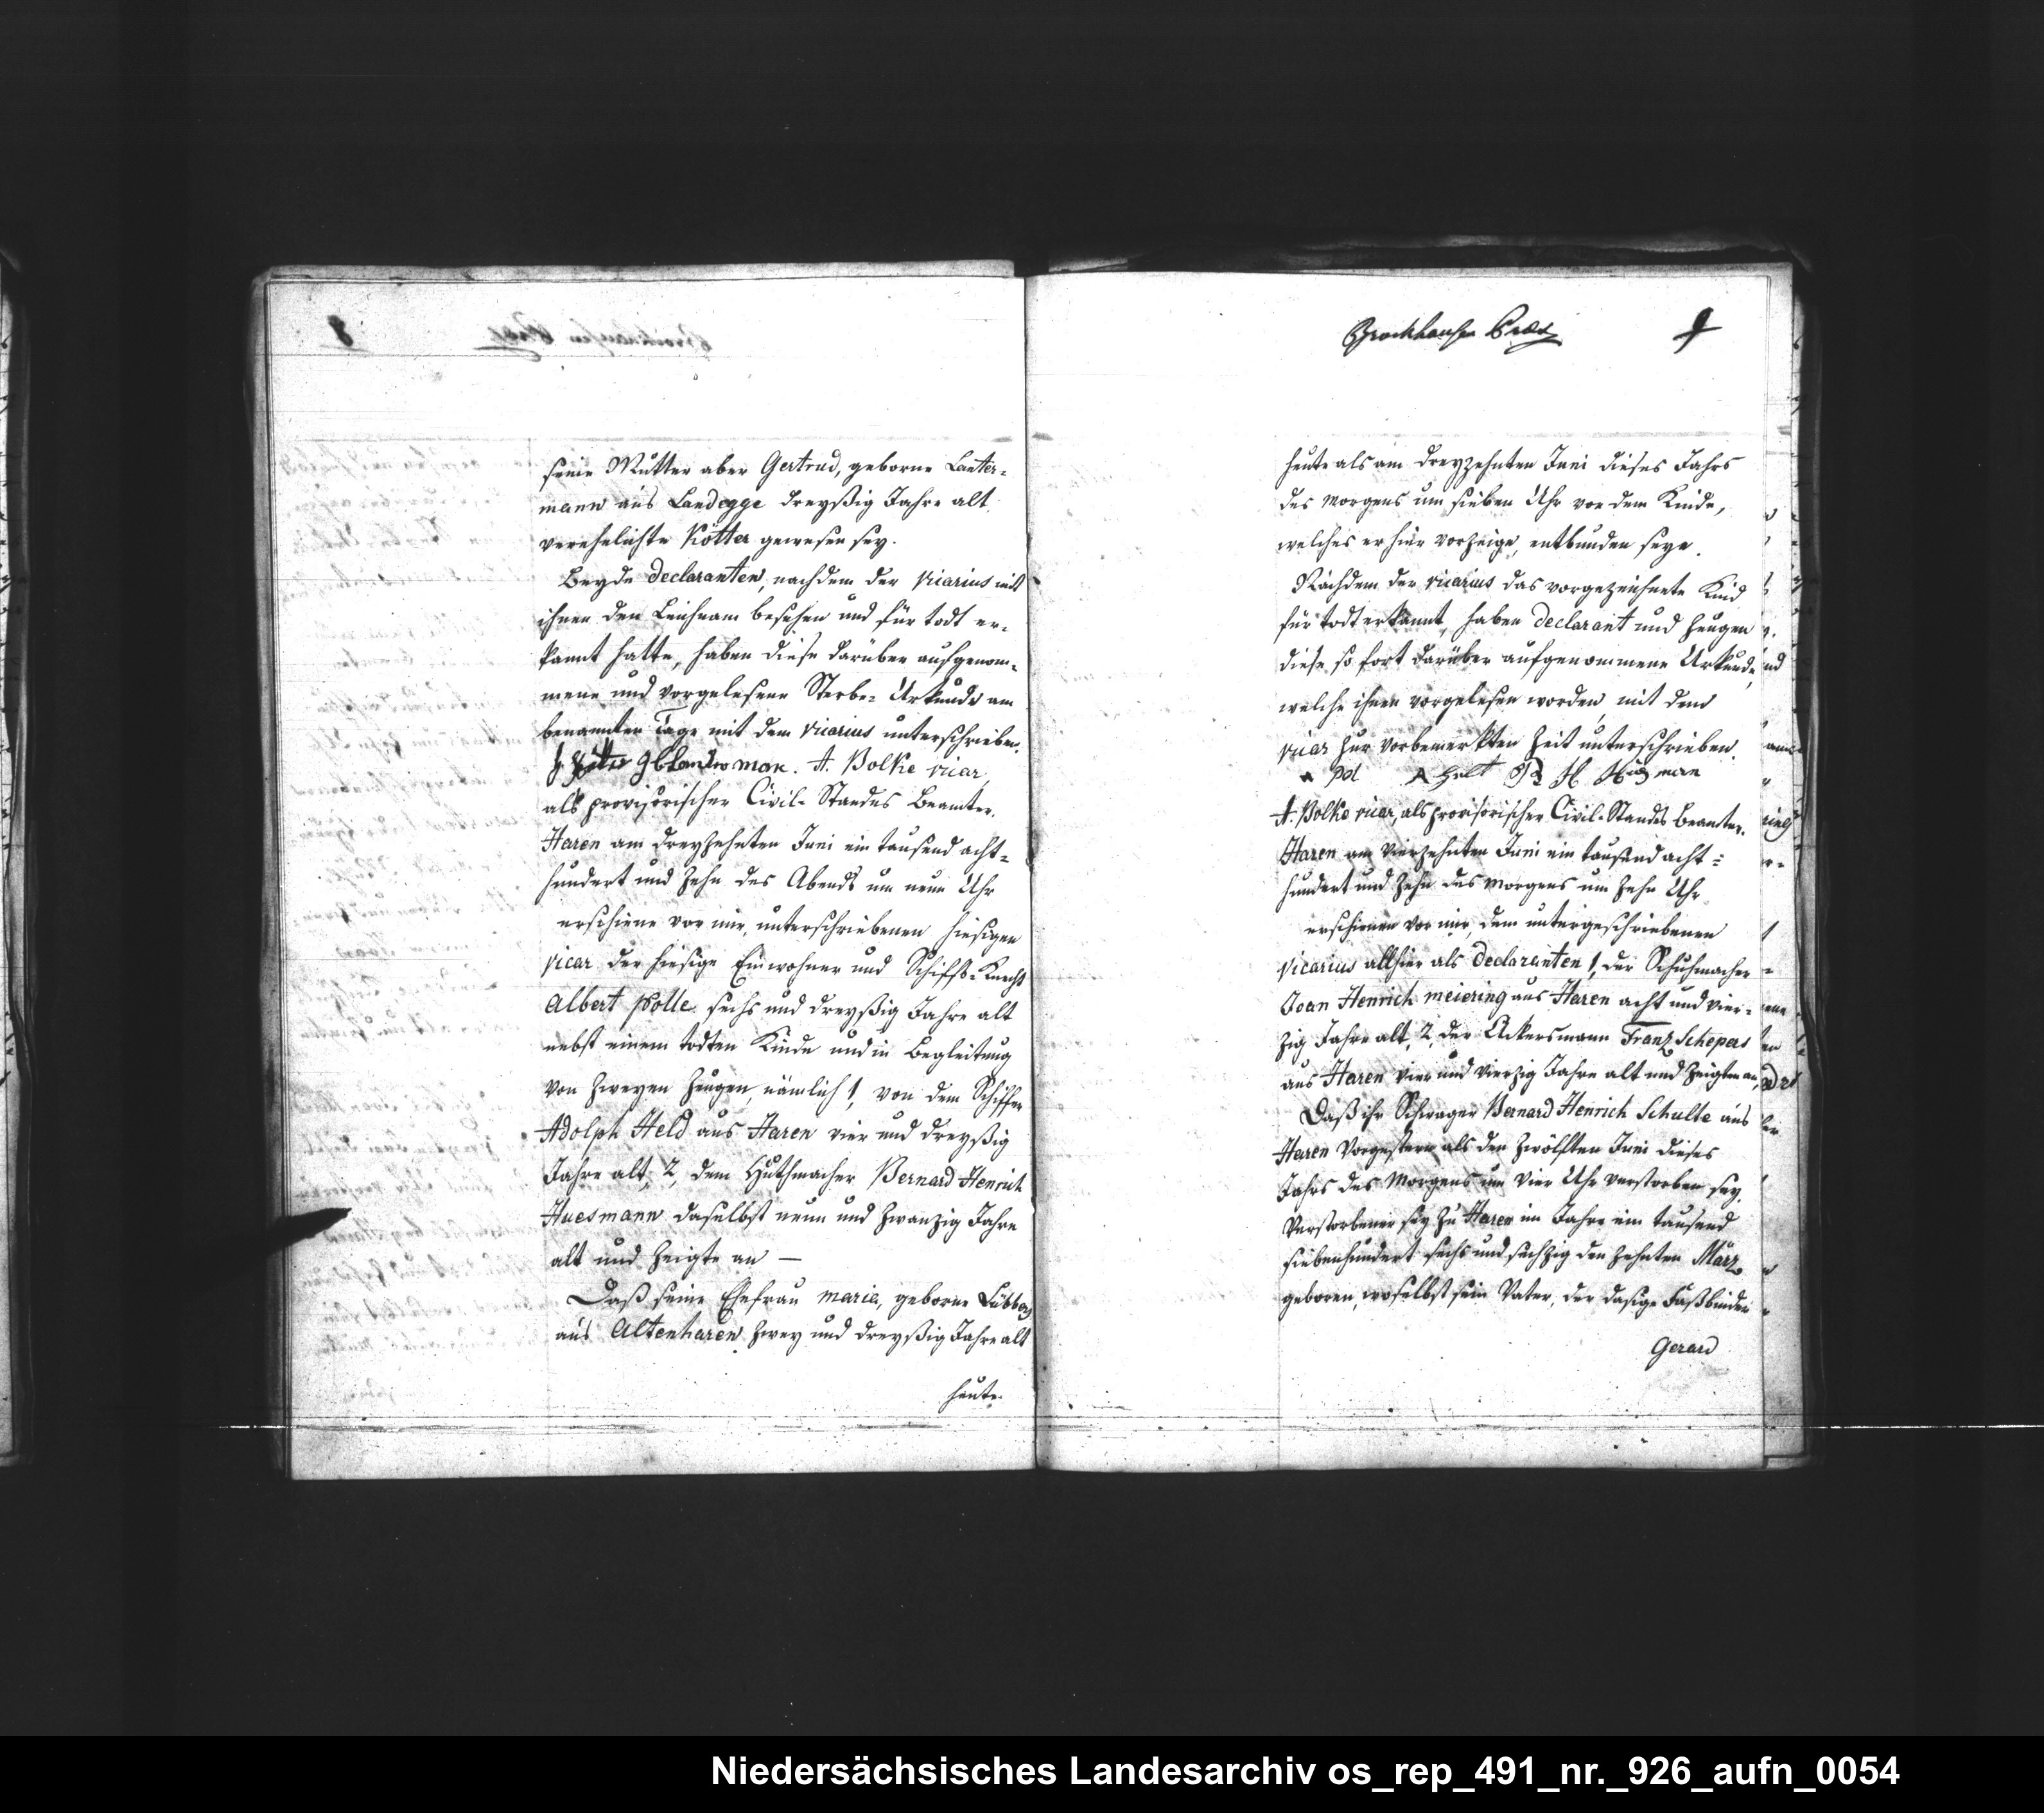 seine Mutter aber Gertrud, geborne Lanter-
mann aus Landegge dreyßig Jahre alt
verehelichte Kötter gewesen sey.
Beyde Declaranten, nachdem der Vicarius mit
ihnen den Leichnam besehen und für todt er-
kannt hatte, haben diese darüber aufgenom-
mene und vorgelesene Sterbe-Urkunde am
benannten Tage mit dem Vicarius unterschrieben.
A. Bolke vicar,
als provisorischer Civil-Standes Beamter.
Haren am dreyzehnten Juni ein tausend acht-
hundert und zehn des Abends um neun Uhr
erschiene vor mir, unterschriebenen hiesigen
Vicar der hiesige Einwohner und Schiffs-Knecht
Albert Polle sechs und dreyßig Jahre alt
nebst einem todten Kinde und in Begleitung
von zweyen Zeugen, nämlich 1, von dem Schiffer
Adolph Held aus Haren vier und dreyßig
Jahre alt, 2, dem Huthmacher Bernard Henrich
Huesmann daselbst neun und zwanzig Jahre
alt und zeigte an —
Daß seine Ehefrau Maria, geborne Lübbers
aus Altenharen zwey und dreyßig Jahre alt
heute
Brockhausen Præs
9
heute als am dreyzehnten Juni dieses Jahrs
des Morgens um sieben Uhr von dem Kinde,
welches er hier vorzeige, entbunden seye.
Nachdem der Vicarius das vorgezeichnete Kind
für todt erkannt, haben Declarant und Zeugen
diese so fort darüber aufgenommene Urkunde,
welche ihnen vorgelesen worden, mit dem
Vicar zur vorbemerkten Zeit unterschrieben.
A Pol A Helt B H Husman
A. Bolke vicar, als provisorischer Civil-Standes Beamter.
Haren am vierzehnten Juni ein tausend acht-
hundert und zehn des Morgens um zehn Uhr
erschienen vor mir, dem untergeschriebenen
Vicarius allhier als Declaranten 1, der Schuhmacher
Joan Henrich Meiering aus Haren acht und vier-
zig Jahre alt, 2, der Ackersmann Franz Schepers
aus Haren vier und vierzig Jahre alt und zeigten an,
Daß ihr Schwager Bernard Henrich Schulte aus
Haren vorgestern als den zwölften Juni dieses
Jahrs des Morgens um vier Uhr verstorben sey.
Verstorbener sey zu Haren im Jahre ein tausend
siebenhundert sechs und sechzig den zehnten März
geboren, woselbst sein Vater, der dasige Faßbinder
Gerard
Niedersächsisches Landesarchiv os_rep_491_nr._926_aufn_0054